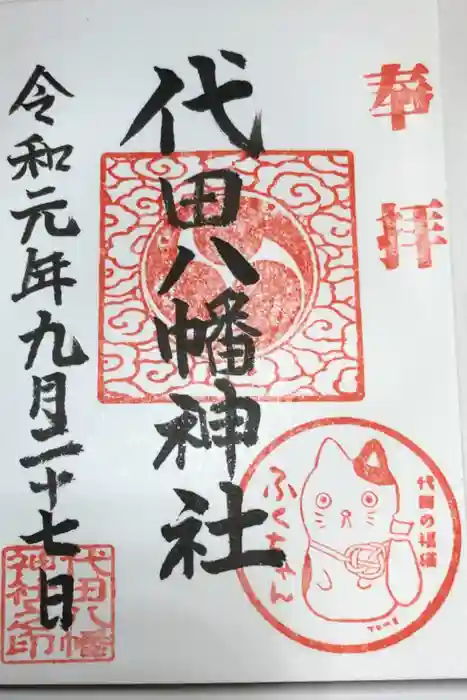 奉拝
代田八幡神社
令和元年九月二十七日
代田の福猫
ふくちゃん
TOME
代田八幡
神社之印